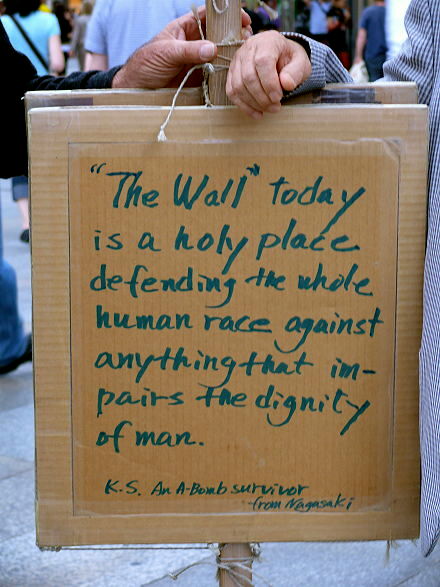 "The Wall" today
is a holy place
defending the whole
human race against
anything that im-
pairs the dignity
of man.
K.S. An A-Bomb survivor
from Nagasaki